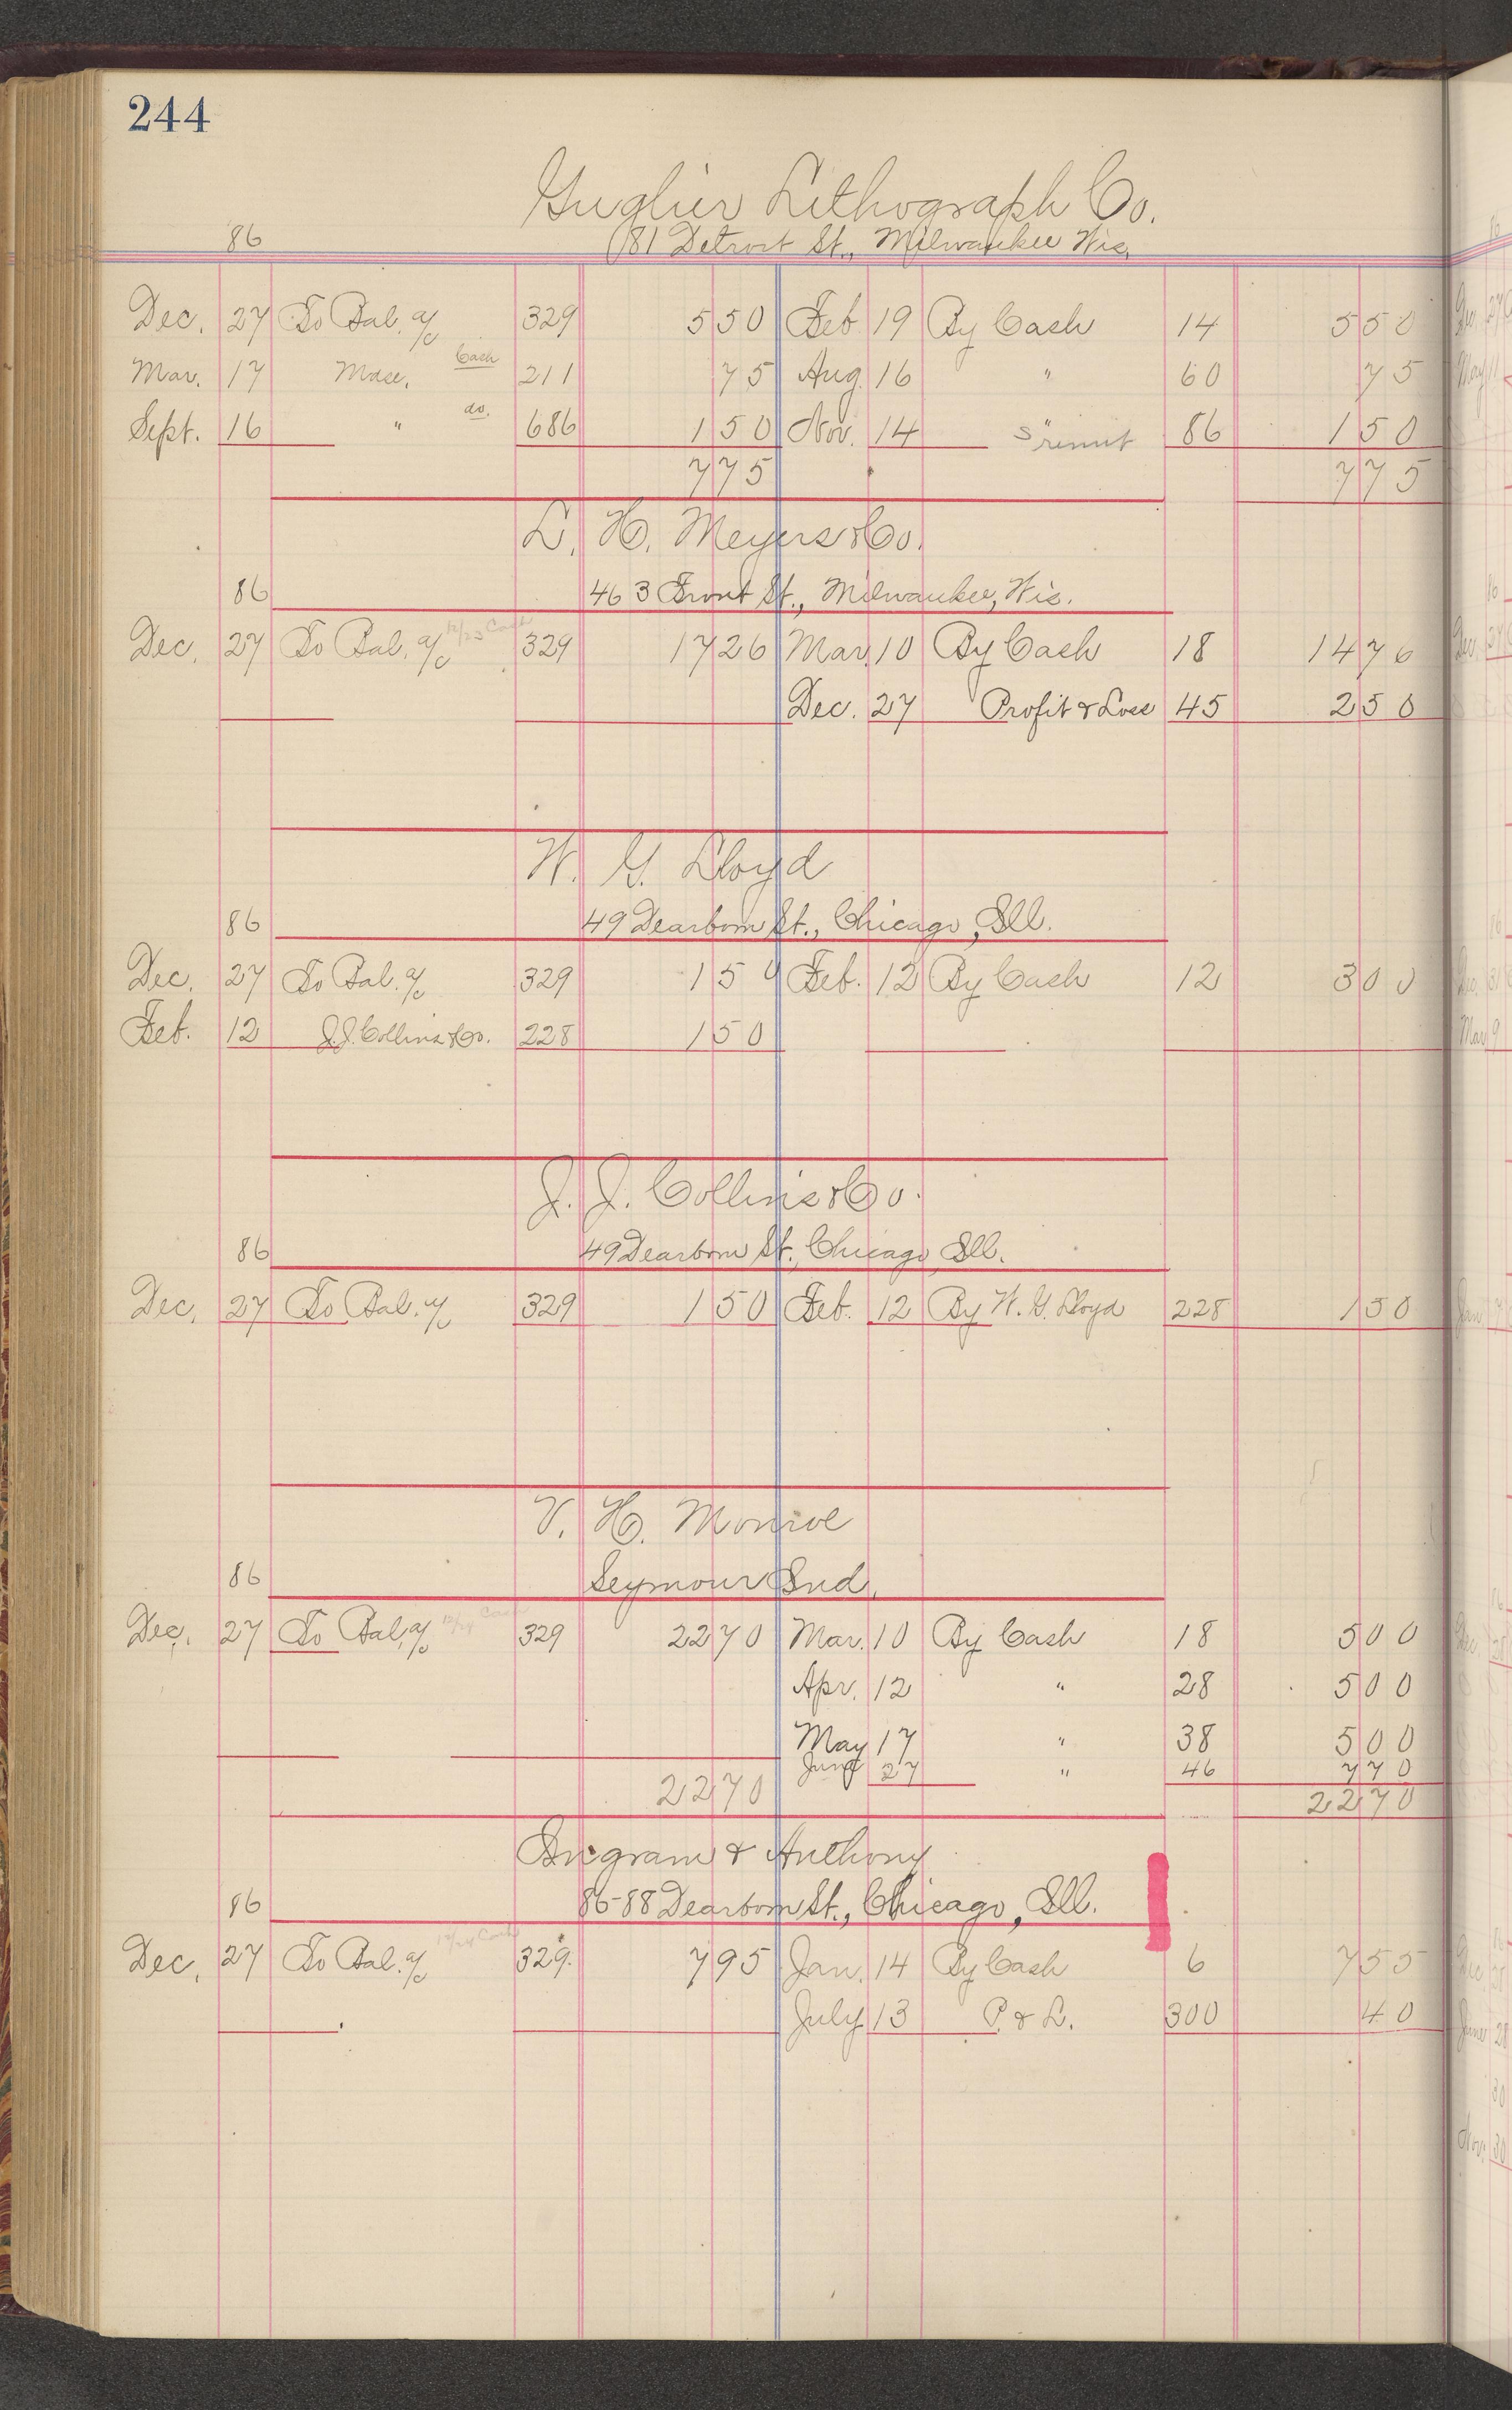 244
Gugler Lithograph Co.
86 181 Detroit St., Milwaukee Wis.
Dec. 27 To Bal. a/c 329 5 50 Feb. 19 By Cash 14 5 50
Mar. 17 Mdse. Cash 211 75 Aug. 16 " 60 75
Sept. 16 " do. 686 1 50 Nov. 14 " remit 86 1 50
7 75 7 75
L. H. Meyers & Co.
86 463 Front St., Milwaukee, Wis.
Dec. 27 To Bal. a/c 12/23 Cash 329 17 26 Mar. 10 By Cash 18 14 76
Dec. 27 Profit & Loss 45 2 50
W. G. Lloyd
86 49 Dearborn St., Chicago, Ill.
Dec. 27 To Bal. a/c 329 1 50 Feb. 12 By Cash 12 3 00
Feb. 12 J. J. Collins & Co. 228 1 50
J. J. Collins & Co.
86 49 Dearborn St., Chicago, Ill.
Dec. 27 To Bal. a/c 329 1 50 Feb. 12 By W. G. Lloyd 228 1 50
V. H. Monroe
86 Seymour Ind.
Dec. 27 To Bal. a/c 12/24 Cash 329 22 70 Mar. 10 By Cash 18 5 00
Apr. 12 " 28 5 00
May 17 " 38 5 00
June 27 " 46 7 70
22 70 22 70
Ingram & Anthony
86 86-88 Dearborn St., Chicago, Ill.
Dec. 27 To Bal. a/c 12/24 Cash 329. 7 95 Jan. 14 By Cash 6 7 55
July 13 P. & L. 300 40